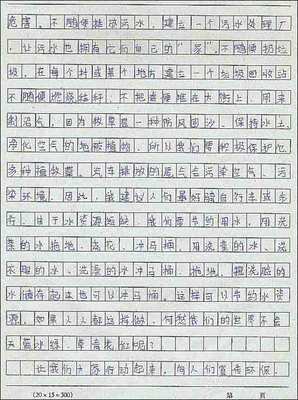 危害。不随便排放污水，建立一个污水处理厂
，让污水也拥有它们自己的“家”。不随便扔垃
圾，在每个村或某个地方建立一个垃圾回收站
不随便燃烧秸秆，不把粪便堆在大街上，用来
制沼气，因为牧草是一种防风固沙、保持水土、
净化空气的地被植物，所以我们要积极保护它
多种植牧草。汽车排放的尾气会污染空气、污
染环境。因此，我建议人们最好骑自行车或步
行。由于水资源短缺，我们要节约用水，用洗
菜的水拖地、浇花、冲马桶，用洗衣的水、洗
不脏的水、洗澡的水冲马桶、拖地。把洗脸的
水储存起来也可以冲马桶。这样可以节约水资
源。如果人人都这样做，何愁我们的世界不会
天蓝水绿、草青花红呢？
让我们大家行动起来，每人们宣传环保
(20×15=300) 第 页